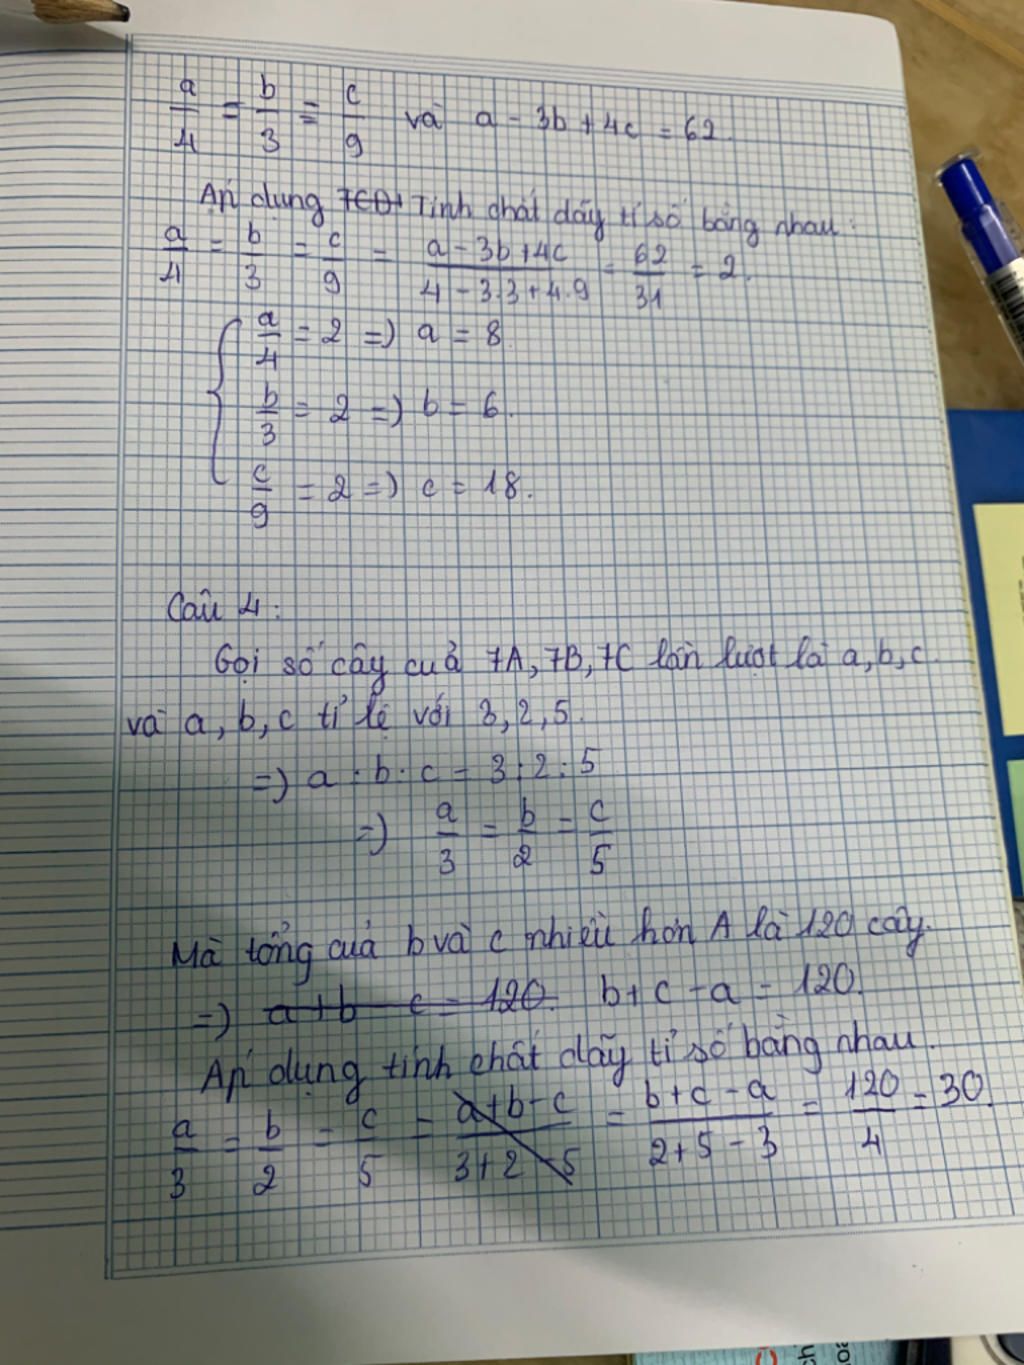 a/4 = b/3 = c/9 và a - 3b + 4c = 62.
Áp dụng Tính chất dãy tỉ số bằng nhau:
a/4 = b/3 = c/9 = (a - 3b + 4c)/(4 - 3.3 + 4.9) = 62/31 = 2.
a/4 = 2 => a = 8
b/3 = 2 => b = 6.
c/9 = 2 => c = 18.
Câu 4:
Gọi số cây của 7A, 7B, 7C lần lượt là a, b, c.
và a, b, c tỉ lệ với 3, 2, 5.
=> a : b : c = 3 : 2 : 5
=> a/3 = b/2 = c/5
Mà tổng của b và c nhiều hơn A là 120 cây.
=> a + b - c = 120. b + c - a = 120.
Áp dụng tính chất dãy tỉ số bằng nhau.
a/3 = b/2 = c/5 = (a + b - c)/(3 + 2 - 5) = (b + c - a)/(2 + 5 - 3) = 120/4 = 30.